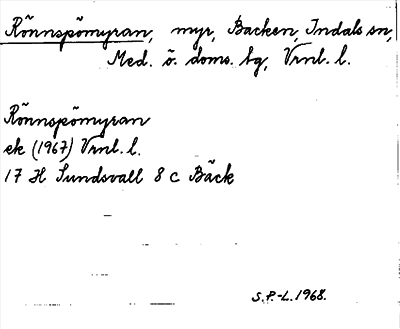 Rönnspömyran, myr, Backen, Indals sn,
Med. ö. doms. bg, Vrnl. l.
Rönnspömyran
ek (1967) Vrnl. l.
17 H Sundsvall 8 c Bäck
S.P.-L. 1968.